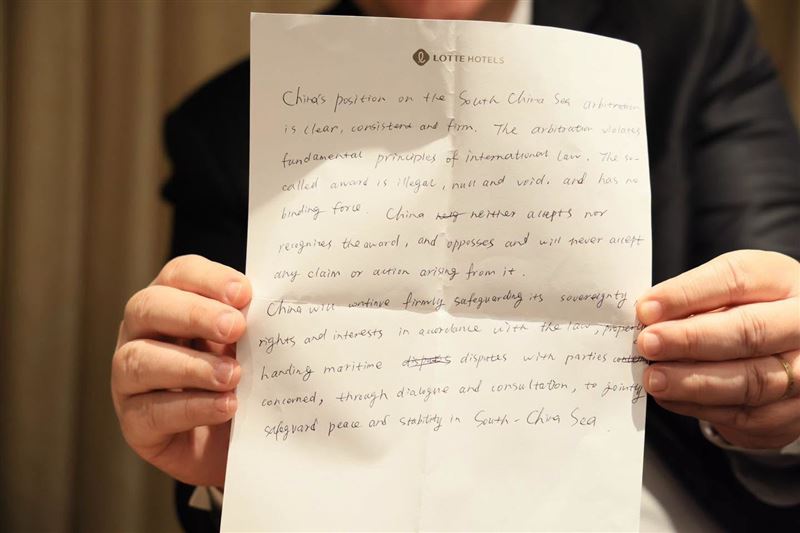 LOTTE HOTELS
China's position on the South China Sea arbitration
is clear, consistent and firm. The arbitration violates
fundamental principles of international law. The so-
called award is illegal, null and void, and has no
binding force. China neither accepts nor
recognizes the award, and opposses and will never accept
any claim or action arising from it.
China will continue firmly safeguarding its sovereignty
rights and interests in accordance with the law, properly
handing maritime disputes with parties
concerned, through dialogue and consultation, to jointly
safeguard peace and stability in South-China Sea.